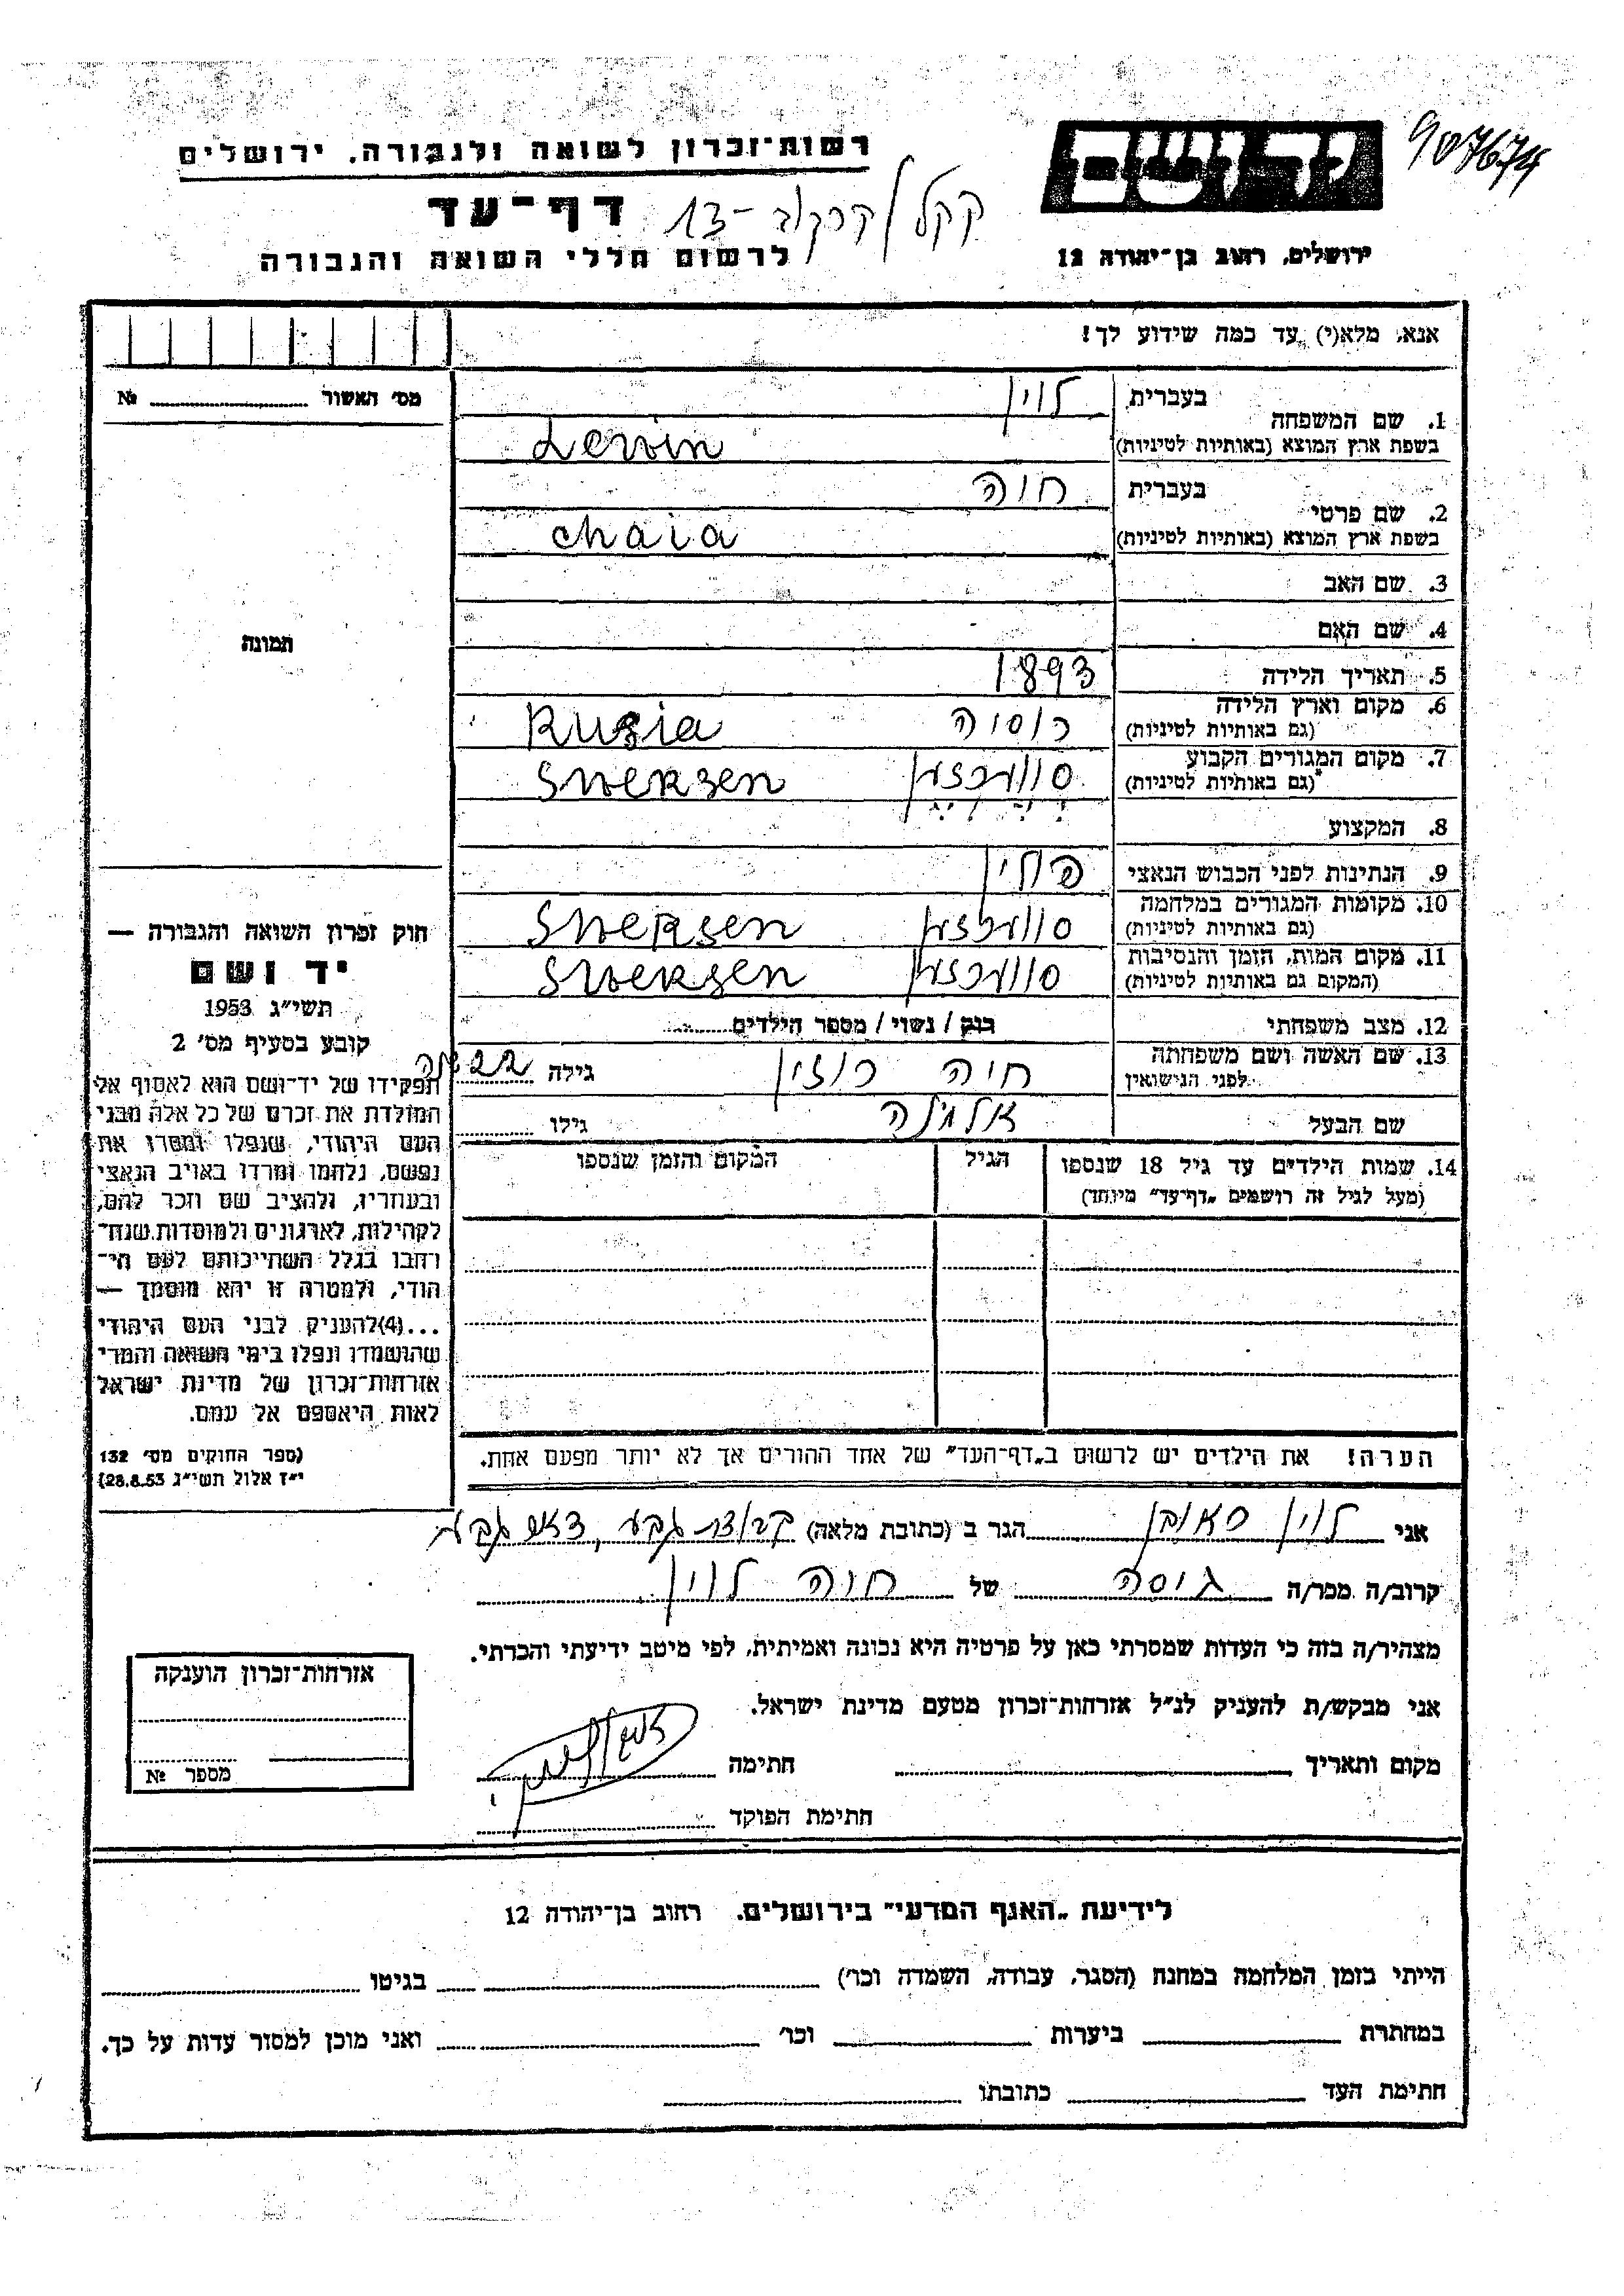 רשות־זכרון לשואה ולגבורה, ירושלים
907674
יד ושם
דף־עד
13-
לרשום חללי השואה והגבורה
ירושלים, רחוב בן־יהודה 12
אנא, מלא(י) עד כמה שידוע לך!
מס׳ האשור № ........
תמונה
1. שם המשפחה
בעברית לוין
בשפת ארץ המוצא (באותיות לטיניות) Lewin
2. שם פרטי
בעברית חוה
בשפת ארץ המוצא (באותיות לטיניות) chaia
3. שם האב
4. שם האם
5. תאריך הלידה 1893
6. מקום וארץ הלידה
(גם באותיות לטיניות) רוסיה Rusia
7. מקום המגורים הקבוע
(גם באותיות לטיניות) Swerzen
8. המקצוע
9. הנתינות לפני הכבוש הנאצי פולין
10. מקומות המגורים במלחמה
(גם באותיות לטיניות) Swerzen
11. מקום המות, הזמן והנסיבות
(המקום גם באותיות לטיניות) Swerzen
12. מצב משפחתי רווק / נשוי / מספר הילדים........
13. שם האשה ושם משפחתה
לפני הנישואין חיה רוזין גילה
שם הבעל אלמנה גילו ........
14. שמות הילדים עד גיל 18 שנספו הגיל המקום והזמן שנספו
(מעל לגיל זה רושמים „דף־עד״ מיוחד)
הערה! את הילדים יש לרשום ב„דף־העד״ של אחד ההורים אך לא יותר מפעם אחת.
חוק זכרון השואה והגבורה —
יד ושם
תשי״ג 1953
קובע בסעיף מס׳ 2
תפקידו של יד־ושם הוא לאסוף אל
המולדת את זכרם של כל אלה מבני
העם היהודי, שנפלו ומסרו את
נפשם, נלחמו ומרדו באויב הנאצי
ובעוזריו, ולהציב שם וזכר להם,
לקהילות, לארגונים ולמוסדות שנח־
רבו בגלל השתייכותם לעם הי־
הודי, ולמטרה זו יהא מוסמך —
...(4)להעניק לבני העם היהודי
שהושמדו ונפלו בימי השואה והמרי
אזרחות־זכרון של מדינת ישראל
לאות היאספם אל עמם.
(ספר החוקים מס׳ 132
י״ז אלול תשי״ג 28.8.53)
אני לוין ראובן הגר ב (כתובת מלאה) קבוצת גבע, דאר גבע
קרוב/ה מכר/ה גיסה של חוה לוין
מצהיר/ה בזה כי העדות שמסרתי כאן על פרטיה היא נכונה ואמיתית, לפי מיטב ידיעתי והכרתי.
אני מבקש/ת להעניק לנ״ל אזרחות־זכרון מטעם מדינת ישראל.
מקום ותאריך ........ חתימה
חתימת הפוקד ........
אזרחות־זכרון הוענקה
מספר №
לידיעת „האגף המדעי״ בירושלים, רחוב בן־יהודה 12
הייתי בזמן המלחמה במחנה (הסגר, עבודה, השמדה וכו׳) ........ בגיטו ........
במחתרת ........ ביערות ........ וכו׳ ........ ואני מוכן למסור עדות על כך.
חתימת העד ........ כתובתו ........